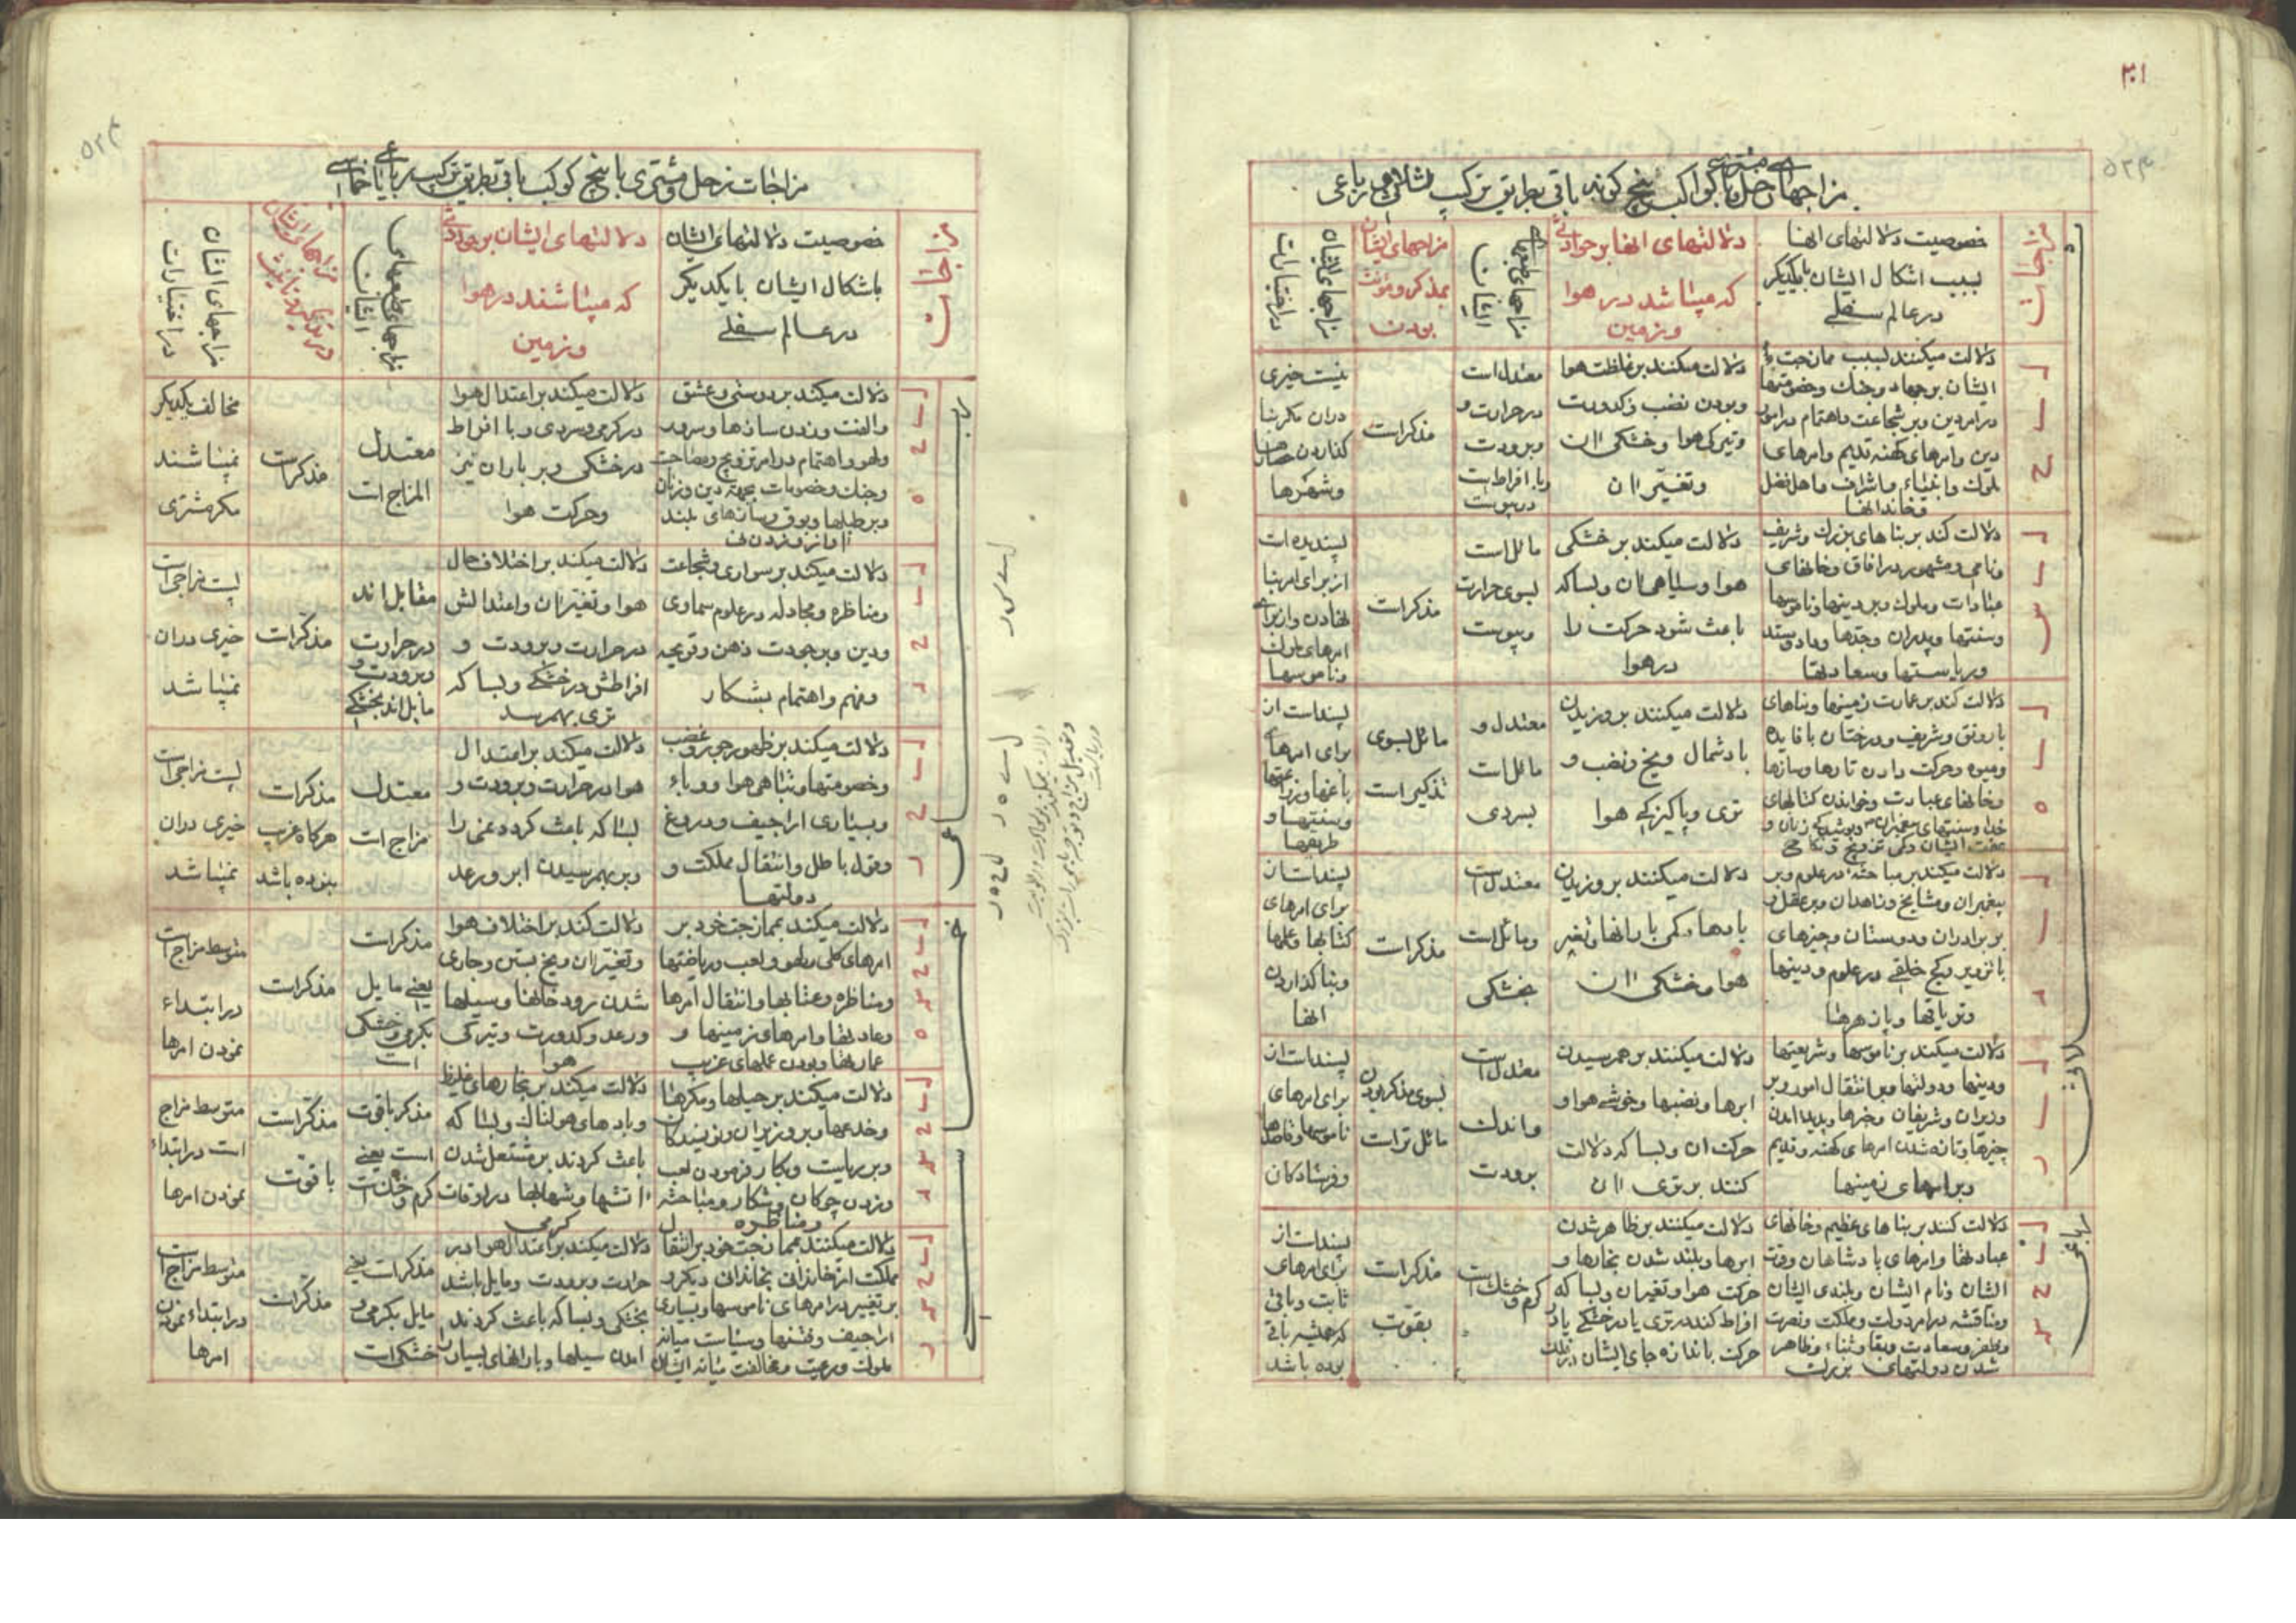 ۳۰۱
مزاجهای زحل و مشتری با کواکب پنج کونه باقی بطریق ترکیب ثلاثی و رباعی
مزاجات
خصوصیت دلالتهای انها
بسبب اشکال ایشان بایکدیکر
در عالم سفلے
دلالتهای انها بر حوادثے
که میباشد در هوا
و زمین
مزاجهای طبعهاے
ایشان
مزاجهای ایشان
بمذکر و مؤنث
بودن
مزاجهای ایشان
در اختیارات
ثلاثی
دلالت میکنند بسبب ممازجت
ایشان بر جهاد و جنك و خصومتها
در امر دین و بر شجاعت و اهتمام در امور
دین و امرهای کهنه قدیم و امرهای
ملوك و اغنیاء و اشراف و اهل فضل
و خاندانها
دلالت میکنند بر غلظت هوا
و بودن نضب و کدورت
و تیرکی هوا و خشکی ان
و تغیّر ان
معتدل است
در حرارت و
و برودت
و با افراط است
در یبوست
مذکرات
نیست خیری
دران مکر بنا
کذاردن حصارها
و شهرها
دلالت کند بر بناهای بزرك و شریف
و نامی و مشهور در افاق و خانهای
عبادات و ملوك و بر دینها و ناموسها
و سنتها و پدران و جدها و داد و ستد
و ریاستها و سعادتها
دلالت میکنند بر خشکی
هوا و سیاهی ان و بسا که
باعث شود حرکت را
در هوا
مائل است
بسوی حرارت
و یبوست
مذکرات
پسندیده است
از برای امر بنا
نهادن و از برای
امرهای ملوك
و ناموسها
دلالت کند بر عمارت زمینها و بناهای
با رونق و شریف و درختان با فایده
و میوه و حرکت دادن تارها و سازها
و خانهای عبادت و خواندن کتابهای
خدا و سنتهای پیغمبران و پوشیدکی زنان و
عفت ایشان و کمی تزویج و نکاح
دلالت میکنند بر وزیدن
باد شمال و یخ و نضب و
تری و پاکیزکے هوا
معتدل و
مائل است
بسردی
مائل بسوی
تذکیر است
پسند است از
برای امرهای
باغها و زراعتها
و سنتها و
طریقها
دلالت میکنند بر مباحثه در علوم و بر
پیغمبران و مشایخ و زاهدان و بر عقل و
بر برادران و دوستان و چیزهای
با تزویر و کج خلقے در علوم و دینها
و تریاقها و پازهرها
دلالت میکنند بر وزیدن
بادها و کمی بارانها و تغیر
هوا و خشکی ان
معتدل است
و مائل است
بخشکی
مذکرات
پسند است از
برای امرهای
کتابها و علمها
و بنا کذاردن
انها
دلالت میکنند بر ناموسها و شریعتها
و دینها و دولتها و بر انتقال امور و بر
وزیران و شریفان و خبرها و پدید امدن
چیزها و تازه شدن امرهای کهنه و قدیم
و بر امرهای زمینها
دلالت میکنند بر بهم رسیدن
ابرها و نضبها و خوشی هوا و
حرکت ان و بسا که دلالت
کنند بر تری ان
معتدل است
و اندك
برودت
بسوی مذکر بودن
مائل تر است
پسند است از
برای امرهای
ناموسها و قاصدها
و فرستادکان
رباعی
دلالت کنند بر بناهای عظیم و خانهای
عبادتها و امرهای پادشاهان و قوت
ایشان و نام ایشان و بلندی ایشان
و مناقشه در امر دولت و مملکت و نصرت
و ظفر و سعادت و بقا و ثناء و ظاهر
شدن دولتهای بزرك
دلالت میکنند بر ظاهر شدن
ابرها و بلند شدن بخارها و
حرکت هوا و تغیر ان و بسا که
افراط کند در تری یا در خشکے یا در
حرکت باندازه جای ایشان از فلك
کرم و خشك است
مذکرات
بقوت
پسند است از
برای امرهای
ثابت و باقی
که همیشه باقی
بوده باشد
مزاجات زحل و مشتری با پنج کوکب باقی بطریق ترکیب رباعے یا خماسے
مزاجات
خصوصیت دلالتهای ایشان
باشکال ایشان با یکدیکر
در عالم سفلے
دلالتهای ایشان بر حوادثے
که میباشند در هوا
و زمین
مزاجهای طبعهای
ایشان
مزاجهای ایشان
در تذکیر و تانیث
مزاجهای ایشان
در اختیارات
رباعی
دلالت میکند بر دوستی و عشق
و الفت و زدن سازها و سرود
و لهو و اهتمام در امر تزویج و مصاحبت
و جنك و خصومات بجهة دین و زنان
و بر طبلها و بوق و سازهای بلند
اواز و زدن نی
دلالت میکند بر اعتدال هوا
در کرمی و سردی و با افراط
در خشکی و بر باران نیز
و حرکت هوا
معتدل
المزاج ات
مذکرات
مخالف یکدیکر
نمیباشند
مکر مشتری
دلالت میکند بر سواری و شجاعت
و مناظره و مجادله در علوم سماوی
و دین و بر جودت ذهن و قریحه
و فهم و اهتمام بشکار
دلالت میکند بر اختلاف حال
هوا و تغیر ان و اعتدالش
در حرارت و برودت و
افراطش در خشکے و بسا که
تری بهم رسد
مقابل اند
در حرارت
و برودت و
مایل اند بخشکے
مذکرات
پست مزاجی است
خیری دران
نمیباشد
دلالت میکند بر ظهور جور و غضب
و خصومتها و تباهی هوا و وباء
و بسیاری اراجیف و دروغ
و قول باطل و انتقال مملکت و
دولتها
دلالت میکند بر اعتدال
هوا در حرارت و برودت و
بسا که باعث کردد غمی را
و بر بهم رسیدن ابر و رعد
معتدل
مزاج ات
مذکرات
هرکاه غریب
نبوده باشد
پست مزاجی است
خیری دران
نمیباشد
خماسی
دلالت میکند بممازجت خود بر
امرهای کلی و لهو و لعب و ریاضتها
و مناظره و عتابها و انتقال امرها
و عادتها و امرهای زمینها و
عمارتها و بودن عملهای غریب
دلالت کند بر اختلاف هوا
و تغیر ان و یخ بستن و جاری
شدن رودخانها و سیلها
و رعد و کدورت و تیرکی
هوا
مذکرات
یعنے مایل
بکرمی و خشکی
است
مذکرات
متوسط مزاج است
در ابتداء
نمودن امرها
دلالت میکند بر حیلها و مکرها
و خدعها و بر وزیران و نویسندکان
و بر ریاست و بکار فرمودن لعب
و زدن چوکان و شکار و مباحثه
و مناظره
دلالت میکند بر بخارهای غلیظ
و بادهای هولناك و بسا که
باعث کردند بر مشتعل شدن
اتشها و شهابها در اوقات
کرمی
مذکر با قوت
است یعنے
کرم و خشك است
مذکرات
با قوت
متوسط مزاج
است در ابتداء
نمودن امرها
دلالت میکنند بممازجت خود بر انتقال
مملکت از خاندانی بخاندانی دیکر و
بر تغییر در امرهای ناموسها و بسیاری
اراجیف و فتنها و سیاست میانه
ملوك و رعیت و مخالفت میانه ایشان
دلالت میکند بر اعتدال هوا در
حرارت و برودت و مایل باشد
بخشکی و بسا که باعث کردند
امدن سیلها و بارانهای بسیار
مذکرات یعنے
مایل بکرمی و
خشکی است
مذکرات
متوسط مزاج است
در ابتداء نمودن
امرها